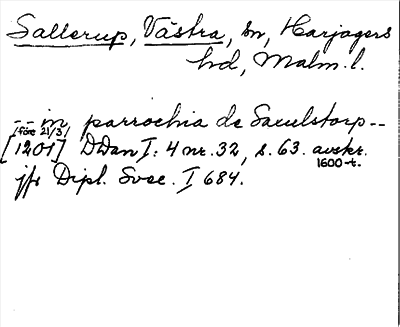 Sallerup, Västra, sn, Harjagers
hd, Malm. l.
-- in parrochia de Saxulstorp --
[före 21/3]
[1201] DDan I: 4 nr. 32, s. 63. avskr.
1600-t.
jfr Dipl. Svec. I 684.